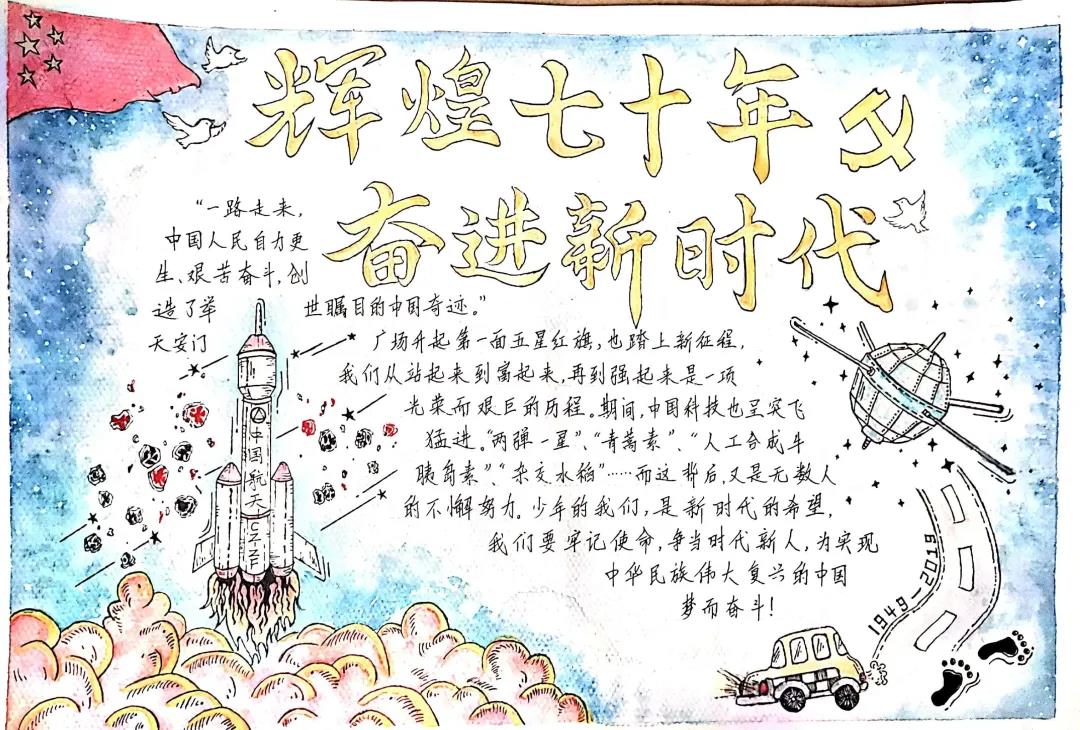 辉煌七十年
奋进新时代
“一路走来，
中国人民自力更
生、艰苦奋斗，创
造了举世瞩目的中国奇迹。”
天安门广场升起第一面五星红旗，也踏上新征程，
我们从站起来到富起来，再到强起来是一项
光荣而艰巨的历程。期间，中国科技也呈突飞
猛进。“两弹一星”、“青蒿素”、“人工合成牛
胰岛素”“杂交水稻”……而这背后，又是无数人
的不懈努力。少年的我们，是新时代的希望，
我们要牢记使命，争当时代新人，为实现
中华民族伟大复兴的中国
梦而奋斗！
中国航天
1949-2019